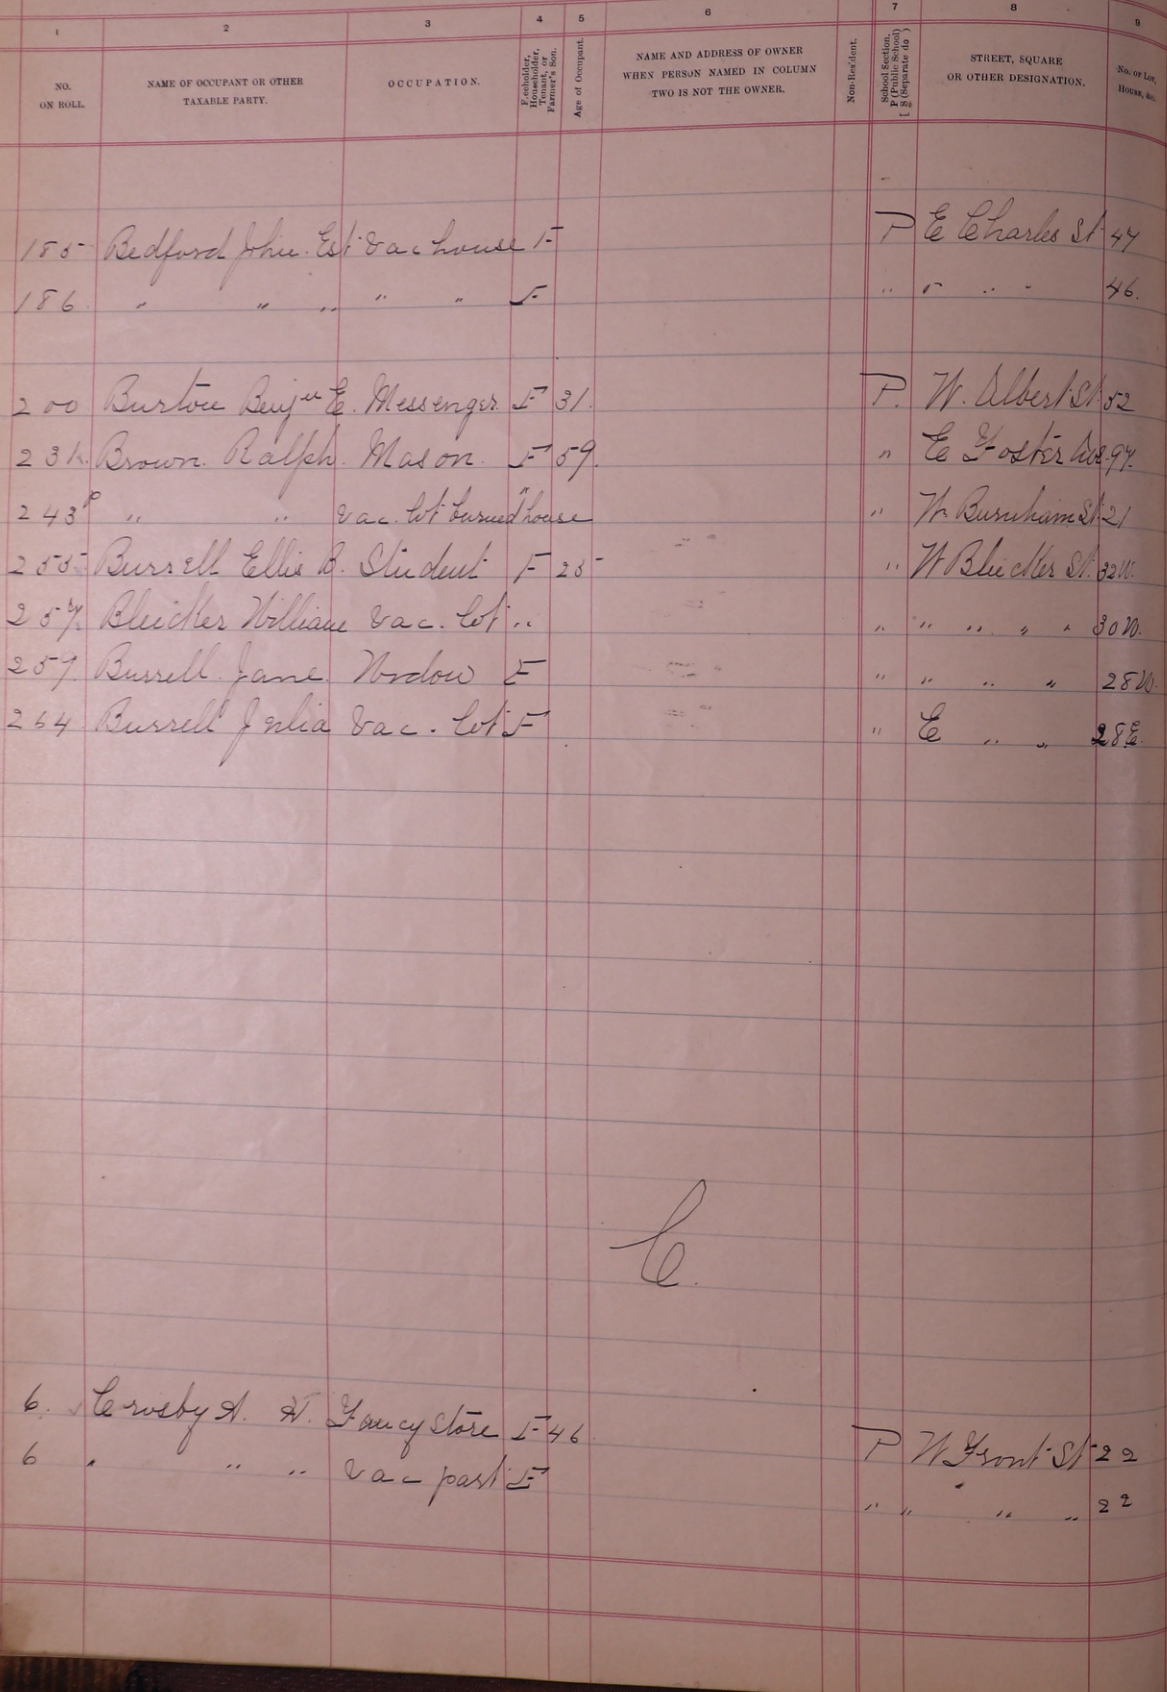 1 2 3 4 5 6 7 8 9
NO. ON ROLL. NAME OF OCCUPANT OR OTHER TAXABLE PARTY. OCCUPATION. Freeholder, Householder, Tenant, or Farmer's Son. Age of Occupant. NAME AND ADDRESS OF OWNER WHEN PERSON NAMED IN COLUMN TWO IS NOT THE OWNER. Non-Resident. School Section. P (Public School) S (Separate do ) STREET, SQUARE OR OTHER DESIGNATION. No. of Lot, House, &c.
185 Bedford John. Est Vac house F P E Charles St 47
186 " " " " " F " " " " 46.
200 Burton Benjn E. Messenger F 31. P. W. Albert St 52
231. Brown Ralph. Mason. F 59. " E Foster Ave 97.
243 " " Vac. lot burned house " " W Burnham St 21
255 Burrell Ellis B. Student F 25 " W Bleicker St. 32W.
257. Bleicker William Vac. lot " " " " " " 30W.
259. Burrell Jane Widow F " " " " 28W.
264 Burrell Julia Vac. lot F " E " " 28E.
C.
6. Crosby A. H. Fancy Store F 46 P W Front St 22
6 " " " Vac part F " " " " 22